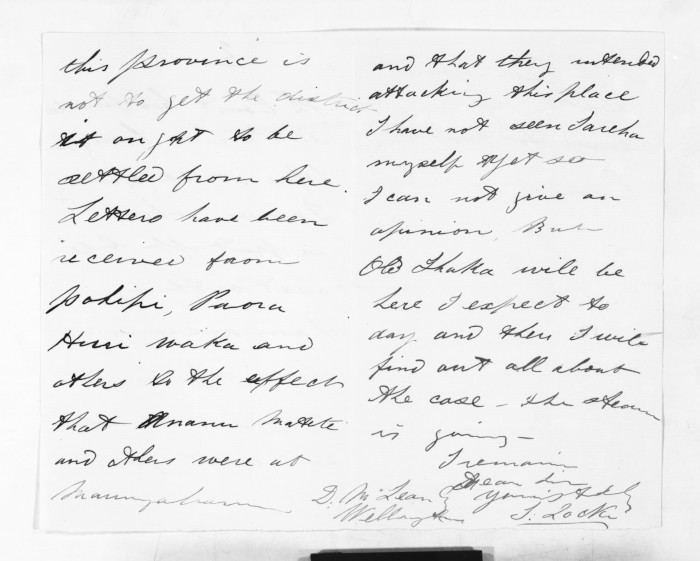 this province is
not to get the district
it ought to be
settled from here.
Letters have been
received from
Paora
waka and
others to the effect
that Matete
and others were at
and that they intended
attacking this place
I have not seen Tareha
myself yet so
I can not give an
opinion. But
Old Ihaka will be
here I expect to
day and then I will
find out all about
the case - the steamer
is going -
I remain
Dear Sir
Yours
S. Locke
D. McLean
Wellington